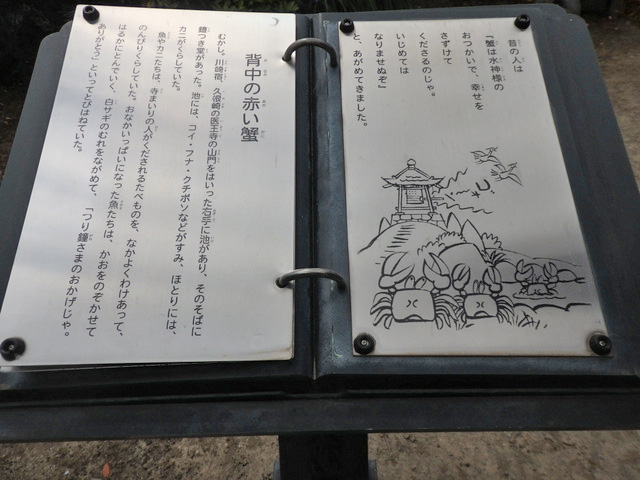 昔の人は
『蟹は水神様の
おつかいで、幸せを
さずけて
くださるのじゃ。
いじめては
なりませぬぞ』
と、あがめてきました。
背中の赤い蟹
むかし。川崎宿、久根崎の医王寺の山門をはいった右手に池があり、そのそばに
鐘つき堂があった。池には、コイ・フナ・クチボソなどがすみ、ほとりには、
カニがくらしていた。
魚やカニたちは、寺まいりの人がくだされるたべものを、なかよくわけあって、
のんびりくらしていた。おなかいっぱいになった魚たちは、かおをのぞかせて
はるかにとんでいく、白サギのむれをながめて、「つり鐘さまのおかげじゃ。
ありがとう」といってとびはねていた。